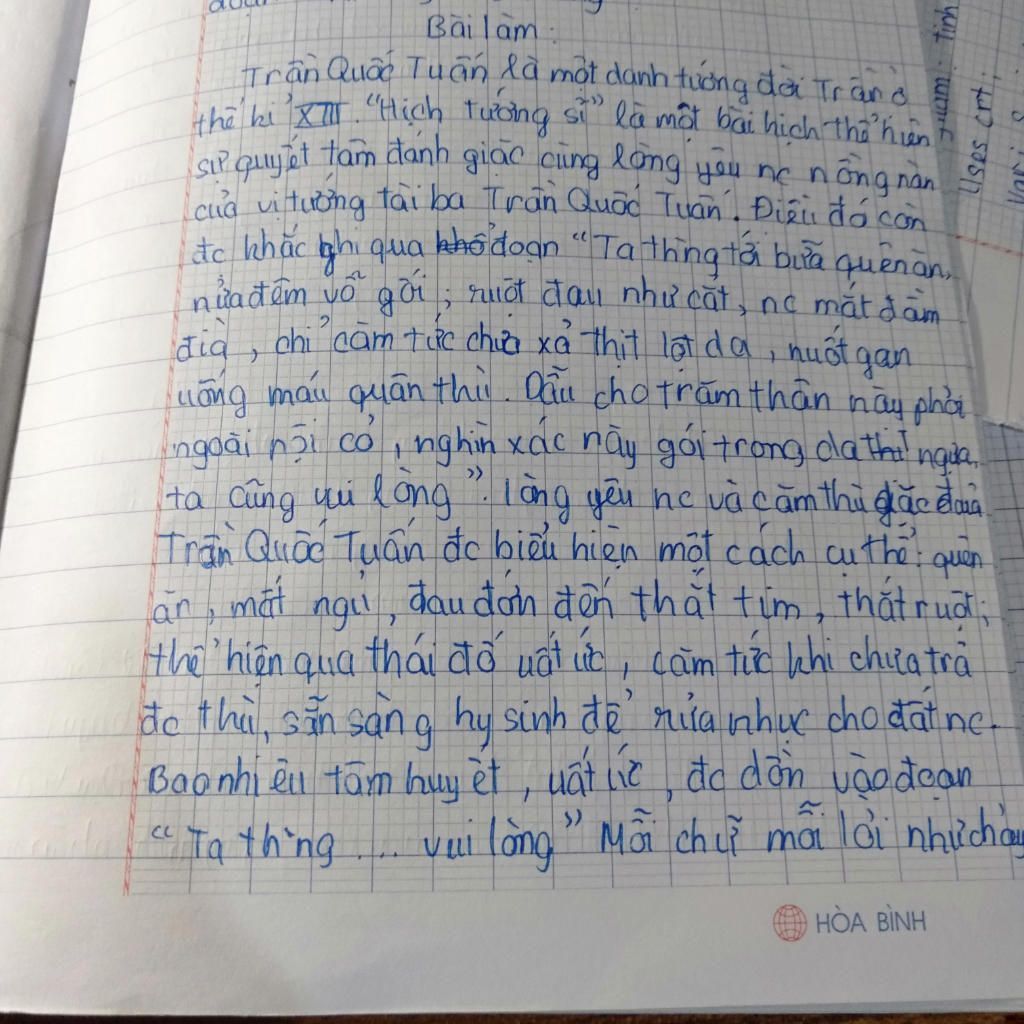 Bài làm:
Trần Quốc Tuấn là một danh tướng đời Trần ở
thế kỉ XIII. "Hịch tướng sĩ" là một bài hịch thể hiện
sự quyết tâm đánh giặc cùng lòng yêu nc nồng nàn
của vị tướng tài ba Trần Quốc Tuấn. Điều đó còn
đc khắc ghi qua khổ đoạn "Ta thường tới bữa quên ăn,
nửa đêm vỗ gối; ruột đau như cắt, nc mắt đầm
đìa, chỉ căm tức chưa xả thịt lột da, nuốt gan
uống máu quân thù. Dẫu cho trăm thân này phơi
ngoài nội cỏ, nghìn xác này gói trong da ngựa,
ta cũng vui lòng". lòng yêu nc và căm thù giặc của
Trần Quốc Tuấn đc biểu hiện một cách cụ thể: quên
ăn, mất ngủ, đau đớn đến thắt tim, thắt ruột;
thể hiện qua thái độ uất ức, căm tức khi chưa trả
đc thù, sẵn sàng hy sinh để rửa nhục cho đất nc.
Bao nhiêu tâm huyết, uất ức, đc dồn vào đoạn
"Ta thường .... vui lòng" Mỗi chữ mỗi lời như chảy
HÒA BÌNH